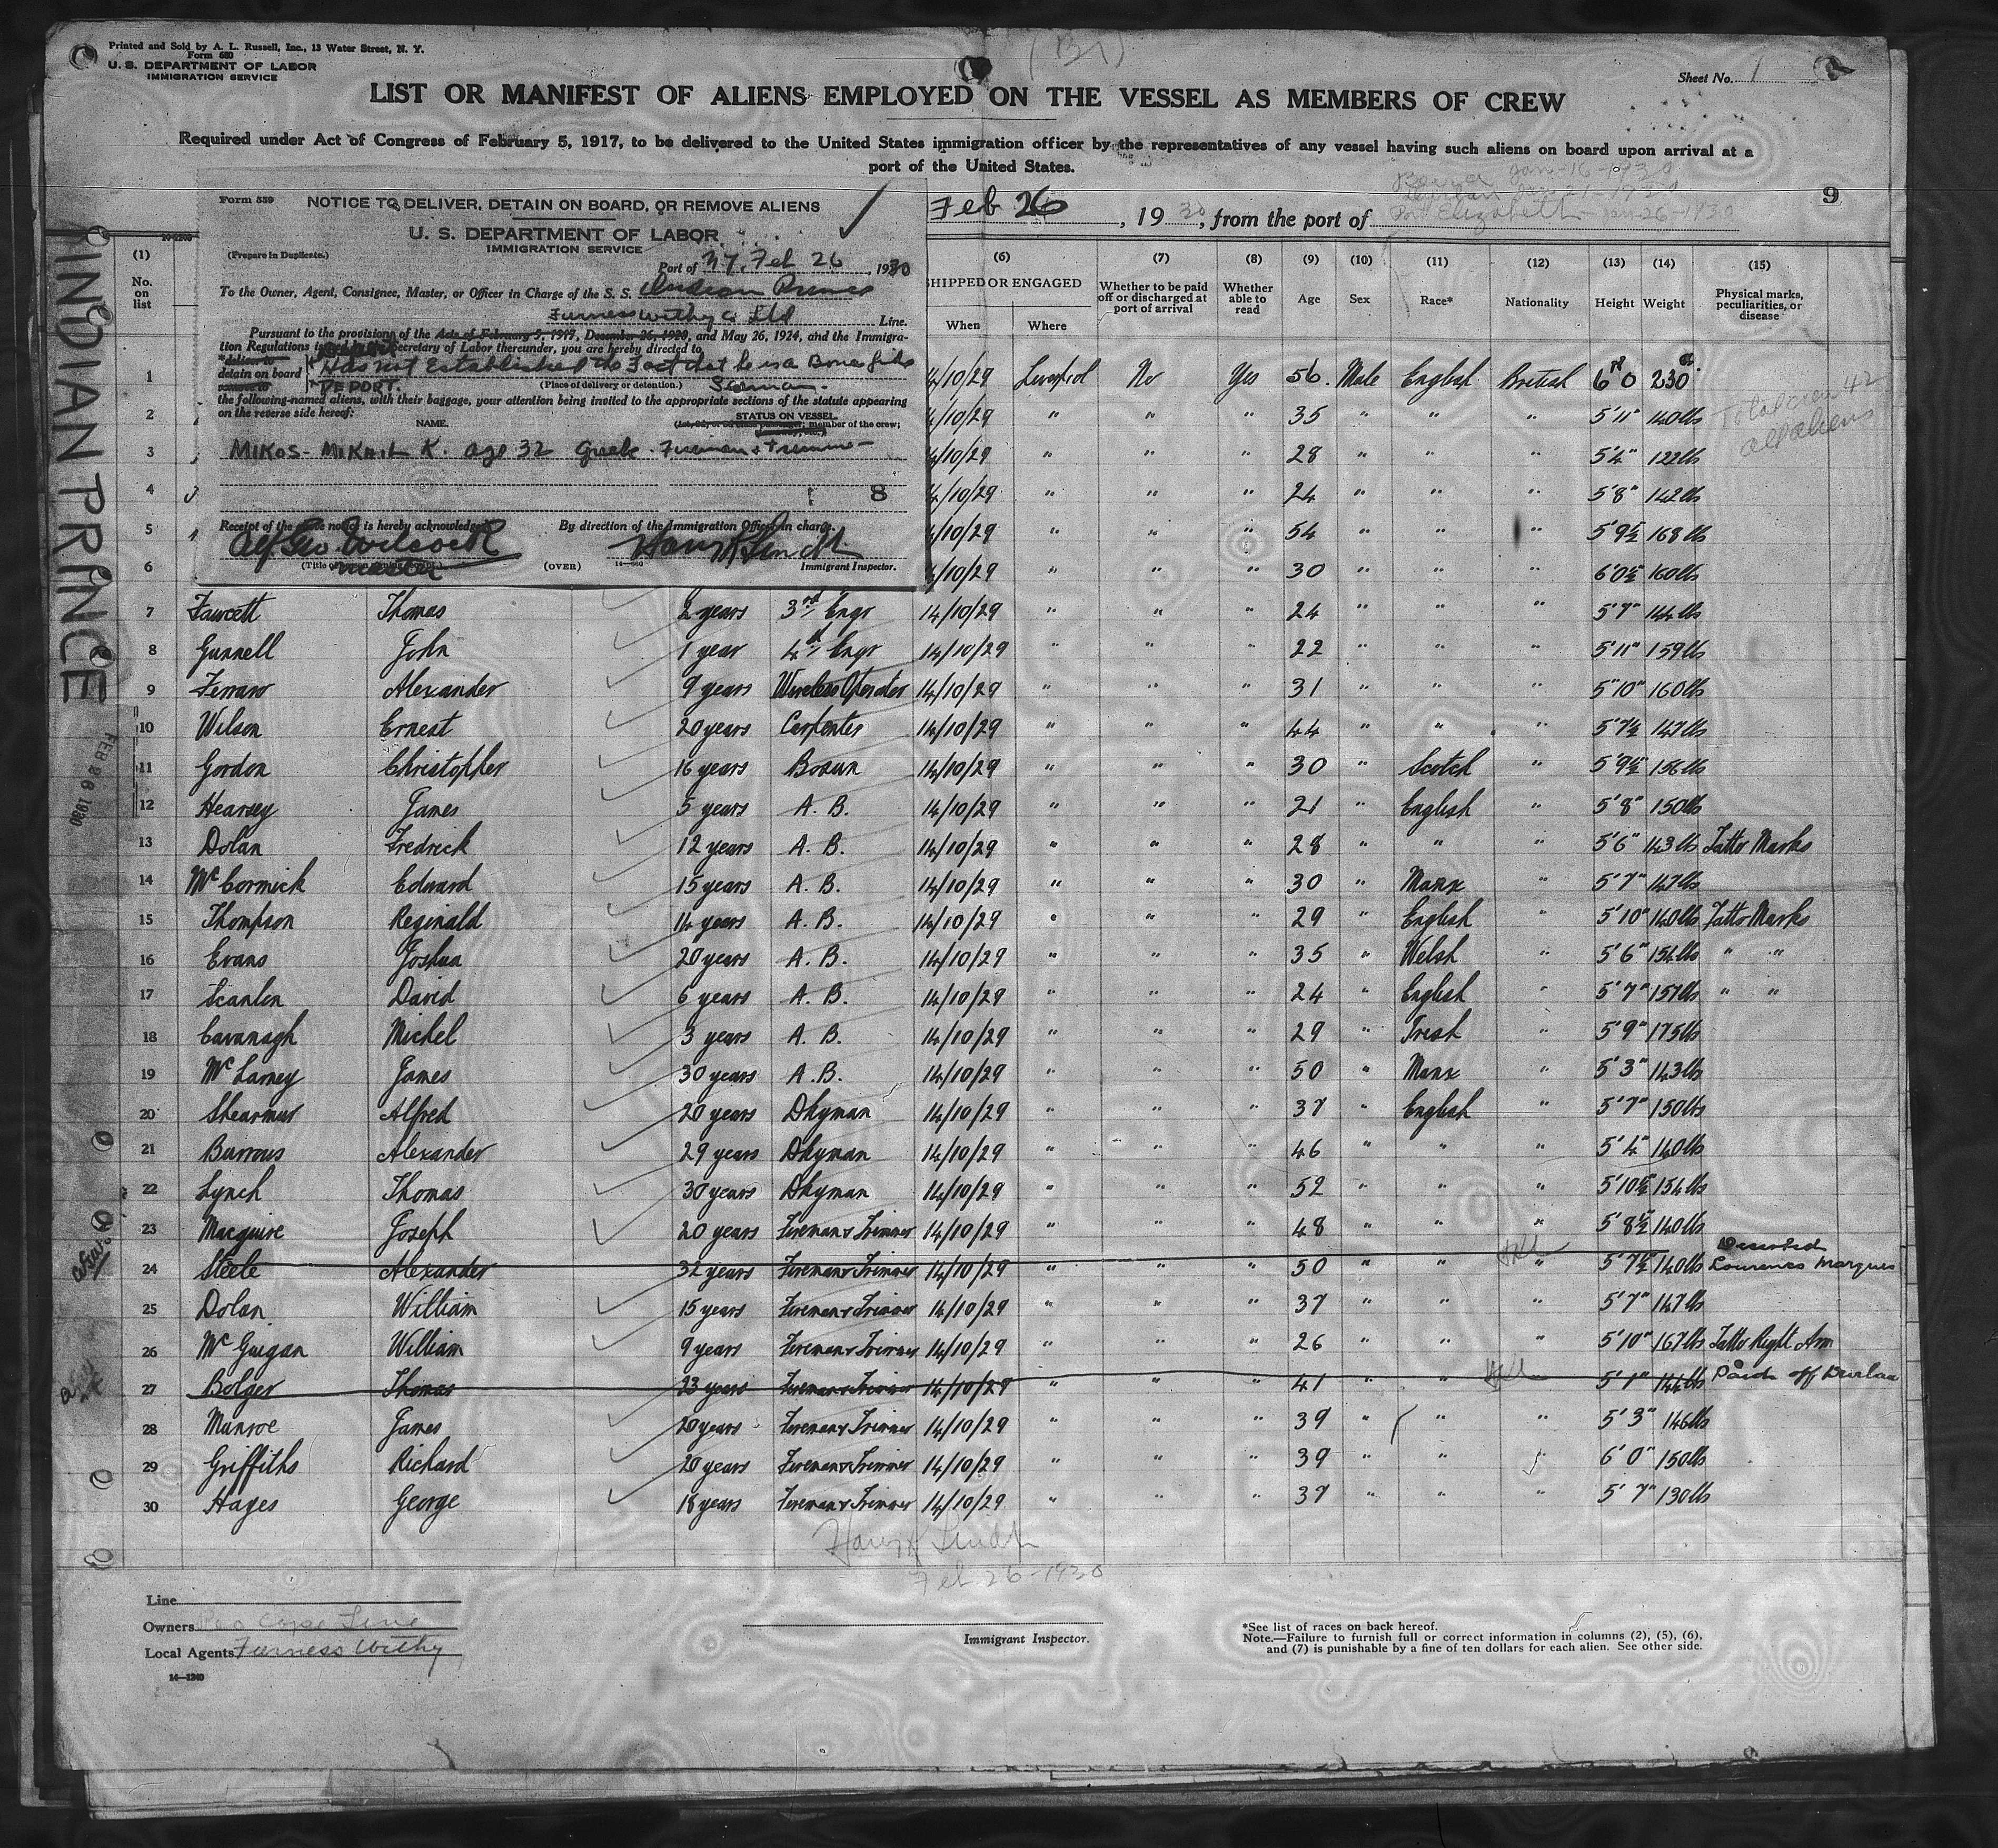 Printed and Sold by A. L. Russell, Inc., 13 Water Street, N. Y.
Form 680
U. S. DEPARTMENT OF LABOR
IMMIGRATION SERVICE
(37)
Sheet No. 1
LIST OR MANIFEST OF ALIENS EMPLOYED ON THE VESSEL AS MEMBERS OF CREW
Required under Act of Congress of February 5, 1917, to be delivered to the United States immigration officer by the representatives of any vessel having such aliens on board upon arrival at a
port of the United States.
Beira Jan-16-1930
Durban Jan 21 1930
Feb 26, 1930, from the port of Port Elizabeth Jan-26-1930
9
Form 559
NOTICE TO DELIVER, DETAIN ON BOARD, OR REMOVE ALIENS
U. S. DEPARTMENT OF LABOR
IMMIGRATION SERVICE
(Prepare in Duplicate.)
Port of N.Y. Feb 26, 1930
To the Owner, Agent, Consignee, Master, or Officer in Charge of the S. S. Indian Prince
Furness Withy Co Ltd Line.
Pursuant to the provisions of the Acts of February 5, 1917, December 26, 1920, and May 26, 1924, and the Immigra-
tion Regulations issued by the Secretary of Labor thereunder, you are hereby directed to
*deliver to
detain on board
remove to
Has not Established the Fact that he is a Bona fide
DEPORT. (Place of delivery or detention.) Seaman.
the following-named aliens, with their baggage, your attention being invited to the appropriate sections of the statute appearing
on the reverse side hereof:
STATUS ON VESSEL.
NAME.
member of the crew;
MIKOS - MIKAIL K. age 32 Greek Fireman + Trimmer
8
Receipt of the above notice is hereby acknowledged
By direction of the Immigration Officer in charge.
Alf Geo Wilcock
Harry R Smith
master
(OVER)
14—660
Immigrant Inspector.
INDIAN PRINCE
FEB 26 1930
(1) (6) (7) (8) (9) (10) (11) (12) (13) (14) (15)
No. on list
SHIPPED OR ENGAGED When Where
Whether to be paid off or discharged at port of arrival
Whether able to read
Age Sex Race* Nationality Height Weight
Physical marks, peculiarities, or disease
1 4/10/29 Liverpool No Yes 56. Male English British 6' 0 230
Total crew 42
all aliens
2 4/10/29 " " " 35 " " " 5'11" 140lbs
3 4/10/29 " " " 28 " " " 5'4" 122lbs
4 4/10/29 " " " 24 " " " 5'8" 142lbs
5 4/10/29 " " " 54 " " " 5'9½ 168lbs
6 4/10/29 " " " 30 " " " 6'0½ 160lbs
7 Fawcett Thomas 2 years 3rd Engr 14/10/29 " " " 24 " " " 5'7" 144lbs
8 Gunnell John 1 year 4th Engr 14/10/29 " " " 22 " " " 5'11" 159lbs
9 Ferraro Alexander 9 years Wireless Operator 14/10/29 " " " 31 " " " 5"10" 160lbs
10 Wilson Ernest 20 years Carpenter 14/10/29 " " " 44 " " " 5'7½ 147lbs
11 Gordon Christopher 16 years Bosun 14/10/29 " " " 30 " Scotch " 5'9½ 156lbs
12 Hearsey James 5 years A. B. 14/10/29 " " " 21 " English " 5'8" 150lbs
13 Dolan Fredrick 12 years A. B. 14/10/29 " " " 28 " " " 5'6" 143lbs Tatto Marks
14 McCormick Edward 15 years A. B. 14/10/29 " " " 30 " Manx " 5'7" 147lbs
15 Thompson Reginald 14 years A. B. 14/10/29 " " " 29 " English " 5'10" 140lbs Tatto Marks
16 Evans Joshua 20 years A. B. 14/10/29 " " " 35 " Welsh " 5'6" 154lbs " "
17 Scanlon David 6 years A. B. 14/10/29 " " " 24 " English " 5'7" 157lbs " "
18 Cavanagh Michel 3 years A. B. 14/10/29 " " " 29 " Irish " 5'9" 175lbs
19 McLarney James 30 years A. B. 14/10/29 " " " 50 " Manx " 5'3" 143lbs
20 Shearmur Alfred 20 years Dkyman 14/10/29 " " " 37 " English " 5'7" 150lbs
21 Burrows Alexander 29 years Dkyman 14/10/29 " " " 46 " " " 5'4" 140lbs
22 Lynch Thomas 30 years Dkyman 14/10/29 " " " 52 " " " 5'10½ 154lbs
23 Macguire Joseph 20 years Fireman & Trimmer 14/10/29 " " " 48 " " " 5'8½ 140lbs
24 Steele Alexander 32 years Fireman & Trimmer 14/10/29 " " " 50 " " " 5'7½ 140lbs Deserted Lourenco Marques
25 Dolan William 15 years Fireman & Trimmer 14/10/29 " " " 37 " " " 5'7" 147lbs
26 McGuigan William 9 years Fireman & Trimmer 14/10/29 " " " 26 " " " 5'10" 167lbs Tatto Right Arm
27 Bolger Thomas 23 years Fireman & Trimmer 14/10/29 " " " 41 " " " 5'1" 144lbs Paid off Durban
28 Munroe James 20 years Fireman & Trimmer 14/10/29 " " " 39 " " " 5'3" 146lbs
29 Griffiths Richard 20 years Fireman & Trimmer 14/10/29 " " " 39 " " " 6'0" 150lbs
30 Hayes George 18 years Fireman & Trimmer 14/10/29 " " " 37 " " " 5'7" 130lbs
Harry R Smith
Feb 26-1930
Line
Owners Cape Line
Local Agents Furness Withy
14—1240
Immigrant Inspector.
*See list of races on back hereof.
Note.—Failure to furnish full or correct information in columns (2), (5), (6),
and (7) is punishable by a fine of ten dollars for each alien. See other side.